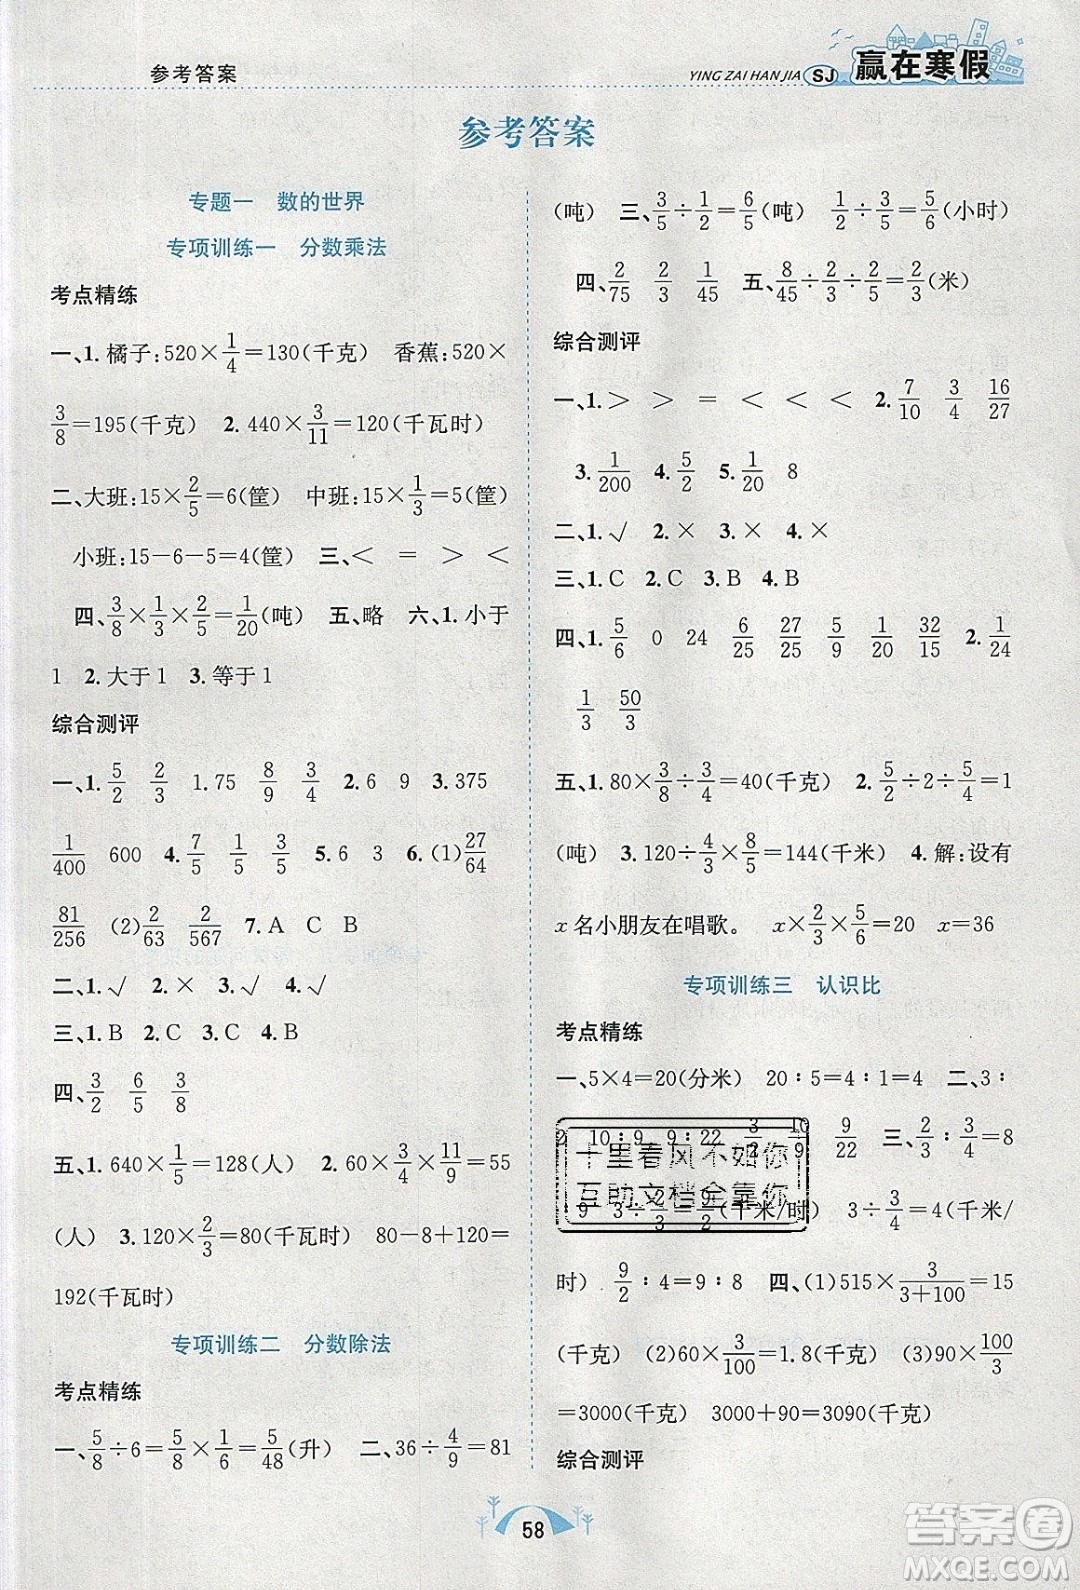 参考答案
YING ZAI HAN JIA SJ 赢在寒假
参考答案
专题一 数的世界
专项训练一 分数乘法
考点精练
一、1. 橘子:520×1/4=130(千克) 香蕉:520×
3/8=195(千克) 2. 440×3/11=120(千瓦时)
二、大班:15×2/5=6(筐) 中班:15×1/3=5(筐)
小班:15-6-5=4(筐) 三、< = > <
四、3/8×1/3×2/5=1/20(吨) 五、略 六、1. 小于
1 2. 大于 1 3. 等于 1
综合测评
一、1. 5/2 2/3 1.75 8/9 3/4 2. 6 9 3. 375
1/400 600 4. 7/5 1/5 3/5 5. 6 3 6. (1)27/64
81/256 (2)2/63 2/567 7. A C B
二、1. √ 2. × 3. × 4. √
三、1. B 2. C 3. C 4. B
四、3/2 6/5 3/8
五、1. 640×1/5=128(人) 2. 60×11/12=55
(人) 3. 120×2/3=80(千瓦时) 80-8+120=
192(千瓦时)
专项训练二 分数除法
考点精练
一、5/8÷6=5/8×1/6=5/48(升) 二、36÷4/9=81
(吨) 三、3/5÷1/2=6/5(吨) 1/2÷3/5=5/6(小时)
四、2/75 2/3 1/45 五、8/45÷2/3÷2/5=2/3(米)
综合测评
一、1. > > = < < < 2. 7/10 3/4 16/27
3. 1/200 4. 5/2 5. 1/20 8
二、1. √ 2. × 3. × 4. ×
三、1. C 2. C 3. B 4. B
四、1. 5/6 0 24 6/25 27/25 5/9 1/20 32/15 2. 1/24
1/3 50/3
五、1. 80×3/8÷3/4=40(千克) 2. 5/2÷2÷5/4=1
(吨) 3. 120÷4/3×8/5=144(千米) 4. 解:设有
x 名小朋友在唱歌。 x×2/3×5/6=20 x=36
专项训练三 认识比
考点精练
一、5×4=20(分米) 20∶5=4∶1=4 二、3∶
2 10∶9 9∶22 3/2 10/9 9/22 三、2/3∶3/4=8
∶9 3÷2/3=9/2(千米/时) 3÷3/4=4(千米/
十里春风不如你
互助文档全靠你
时) 9/2∶4=9∶8 四、(1)515×3/(3+100)=15
(千克) (2)60×3/100=1.8(千克) (3)90×100/3
=3000(千克) 3000+90=3090(千克)
综合测评
58
答案圈
MXQE.COM